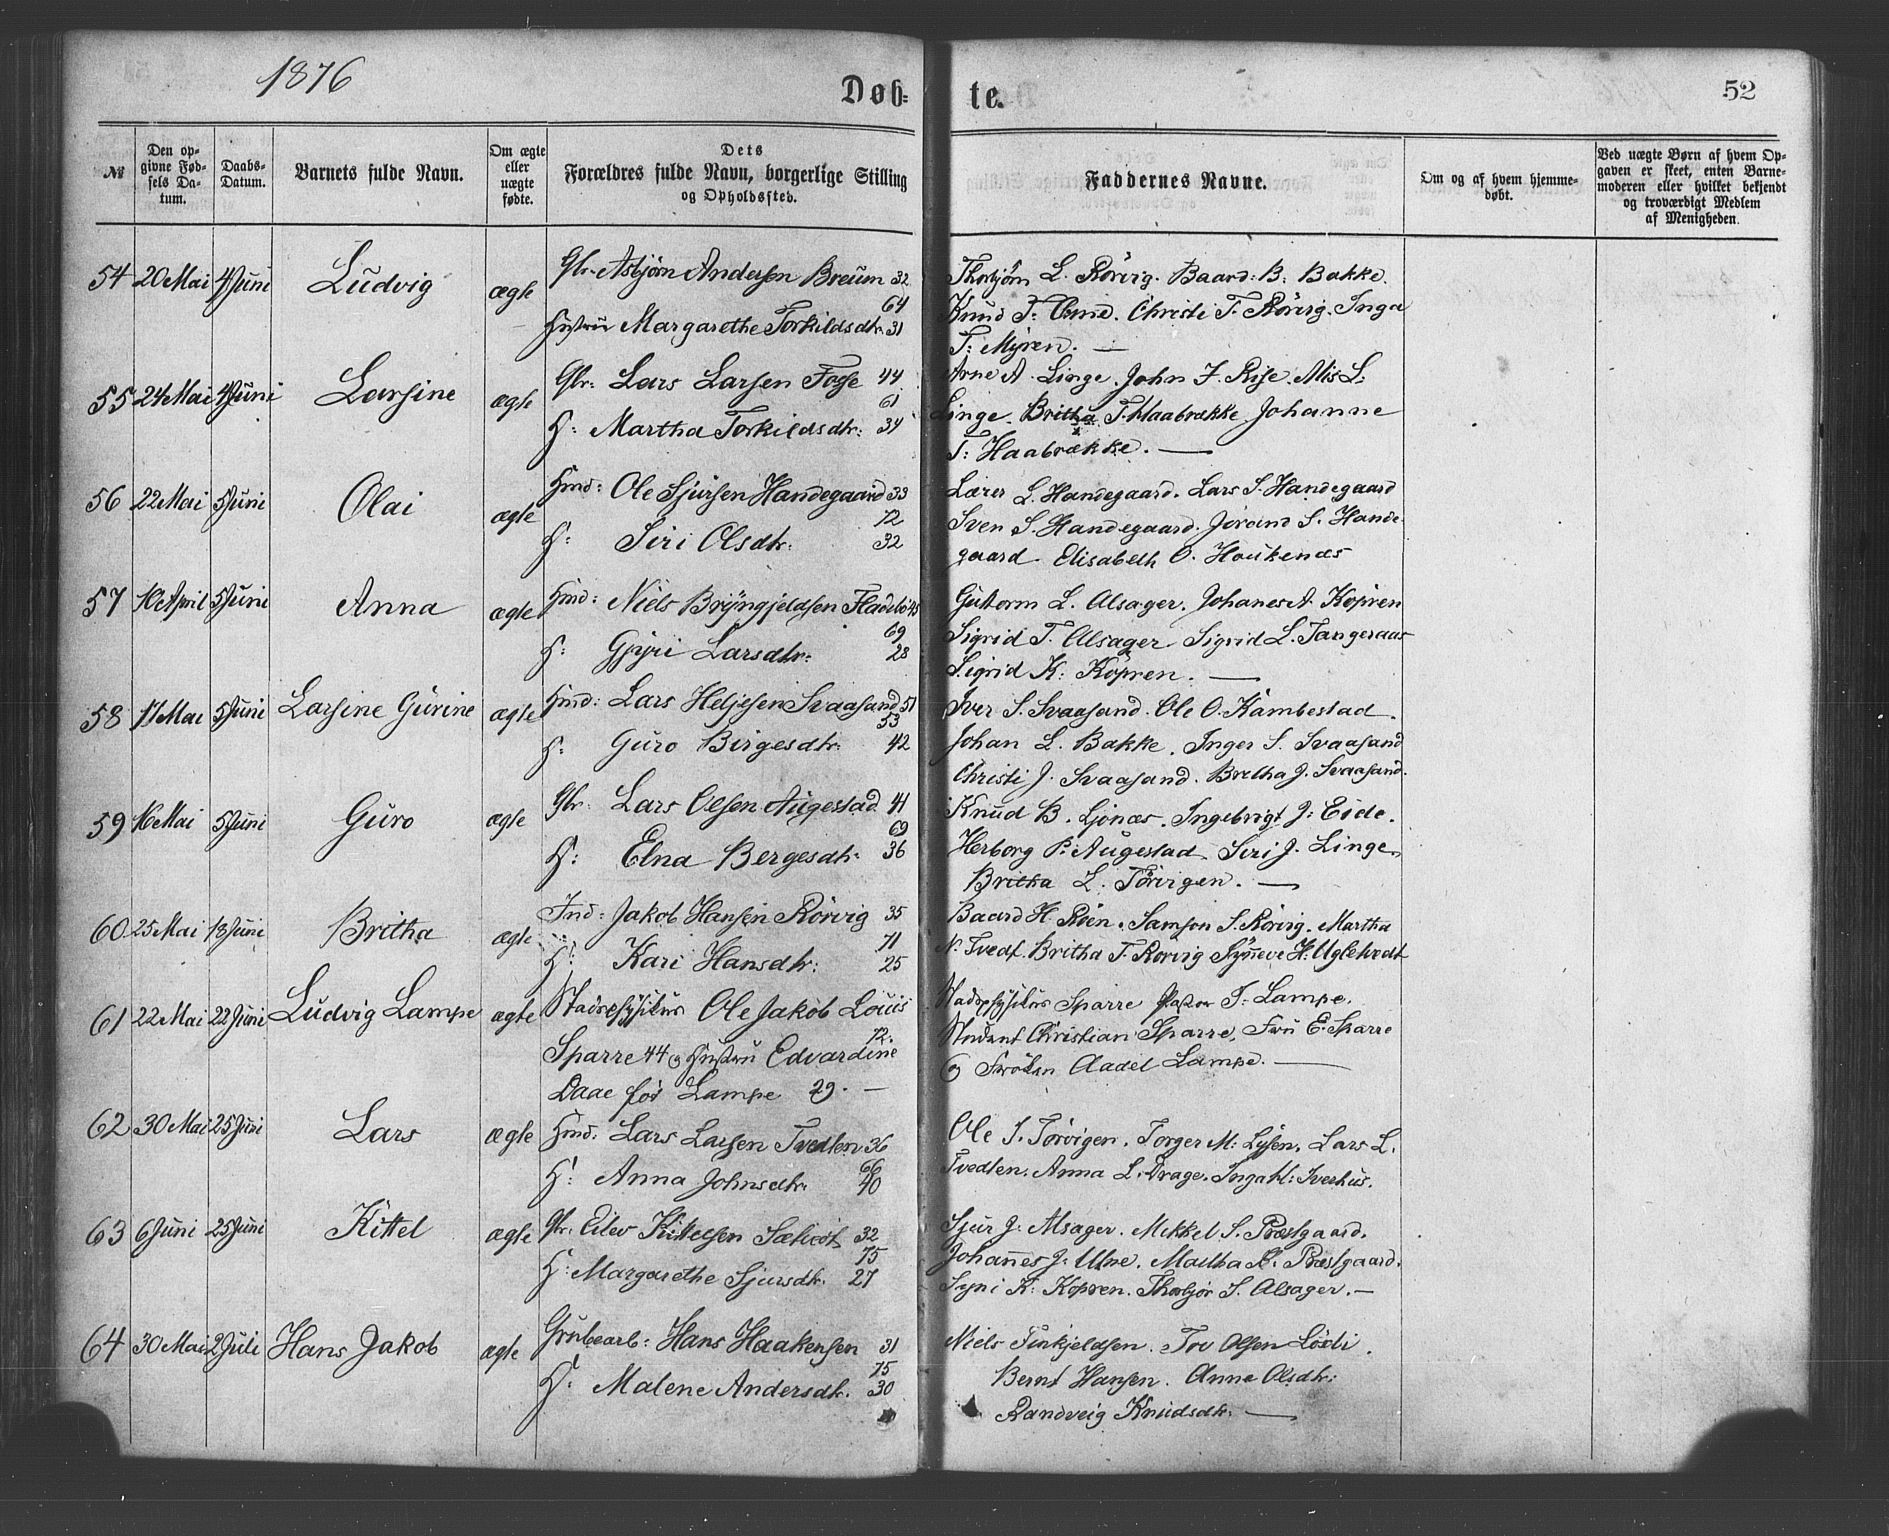 1876
Døb-te.
52
№
Den op-
givne Fød-
sels Da-
tum.
Daabs-
Datum.
Barnets fulde Navn.
Om ægte
eller
uægte
fødte.
Dets
Forældres fulde Navn, borgerlige Stilling
og Opholdssted.
Faddernes Navne.
Om og af hvem hjemme-
døbt.
Ved uægte Børn af hvem Op-
gaven er skeet, enten Barne-
moderen eller hvilket bekjendt
og troværdigt Medlem
af Menigheden.
54 20 Mai 4 Juni Ludvig ægte Gbr. Asbjørn Andersen Breum 32
64
Hustru Margarethe Torkildsdtr. 31
Thorbjörn L. Rörvig. Baard B. Bakke.
Knud T. Christi T. Rörvig. Inga
T: Myren. —
55 24 Mai 4 Juni Larsine ægte Gbr: Lars Larsen Fosse 44
61
H: Martha Torkildsdtr: 34
Arne A. Linge. John J. Rise. Nils L.
Linge. Britha T. Haabrække Johanne
T: Haabrække. —
56 22 Mai 5 Juni Olai ægte Hmd: Ole Sjursen Handegaard 33
72
H: Siri Olsdtr. 32
Lærer L. Handegaard. Lars S. Handegaard
Sven S. Handegaard. Jorand S. Hande-
gaard Elisabeth O. Houkenæs
57 10 April 5 Juni Anna ægte Hmd: Niels Bryngjeldsen Fladebö 45
69
H: Gjyri Larsdtr: 28
Guttorm L. Alsager. Johanes A. Kopren
Sigrid T. Alsager Sigrid L. Tangeraas
Sigrid K: Köpren. —
58 17 Mai 5 Juni Larsine Gurine ægte Hmd: Lars Heljesen Svaasand 51
53
H: Guro Birgesdtr. 42
Iver S. Svaasand. Ole O. Kambestad.
Johan L. Bakke. Inger S. Svaasand
Christi J. Svaasand. Britha J. Svaasand.
59 16 Mai 5 Juni Guro ægte Gbr. Lars Olsen Augestad 41
69
H: Elna Bergesdtr. 36
Knud B. Ljonæs. Ingebrigt J: Eide.
Herborg P. Augestad. Siri J. Linge.
Britha L. Törvigen. —
60 25 Mai 18 Juni Britha ægte Ind: Jakob Hansen Rörvig 35
71
H: Kari Hansdtr: 25
Baard H. Röen. Samson S. Rörvig. Martha
N. Tvedt. Britha T. Rorvig Synneve H. Ugletvedt
61 22 Mai 22 Juni Ludvig Lampe ægte Stadsfysikus Ole Jakob Louis
72.
Sparre 44 og Hustru Edvardine
Daae født Lampe 29. —
Stadsfysikus Sparre Pastor J. Lampe.
Student Christian Sparre, Fru E. Sparre
og Frøken Aadel Lampe. —
62 30 Mai 25 Juni Lars ægte Hmd: Lars Larsen Tvedten 36
66
H: Anna Johnsdtr. 40
Ole S. Törvigen. Torger M: Lysen. Lars L.
Tvedten. Anna L. Drage. Inga H: Iverhus.
63 6 Juni 25 Juni Kittel ægte Gbr. Eilev Kittelsen Sælvedt 32
75
H: Margarethe Sjursdtr. 27
Sjur J: Alsager. Mikkel S. Præstgaard.
Johannes J: Utne. Martha Præstgaard.
Syni K: Kopren. Thorbjör S. Alsager. —
64 30 Mai 2 Juli Hans Jakob ægte Grubearb: Hans Haakensen 31
75
H: Malene Andersdtr. 30
Niels Finkjeldsen. Tov Olsen
Bernt Hansen. Anne Olsdtr:
Randveig Knudsdtr. —